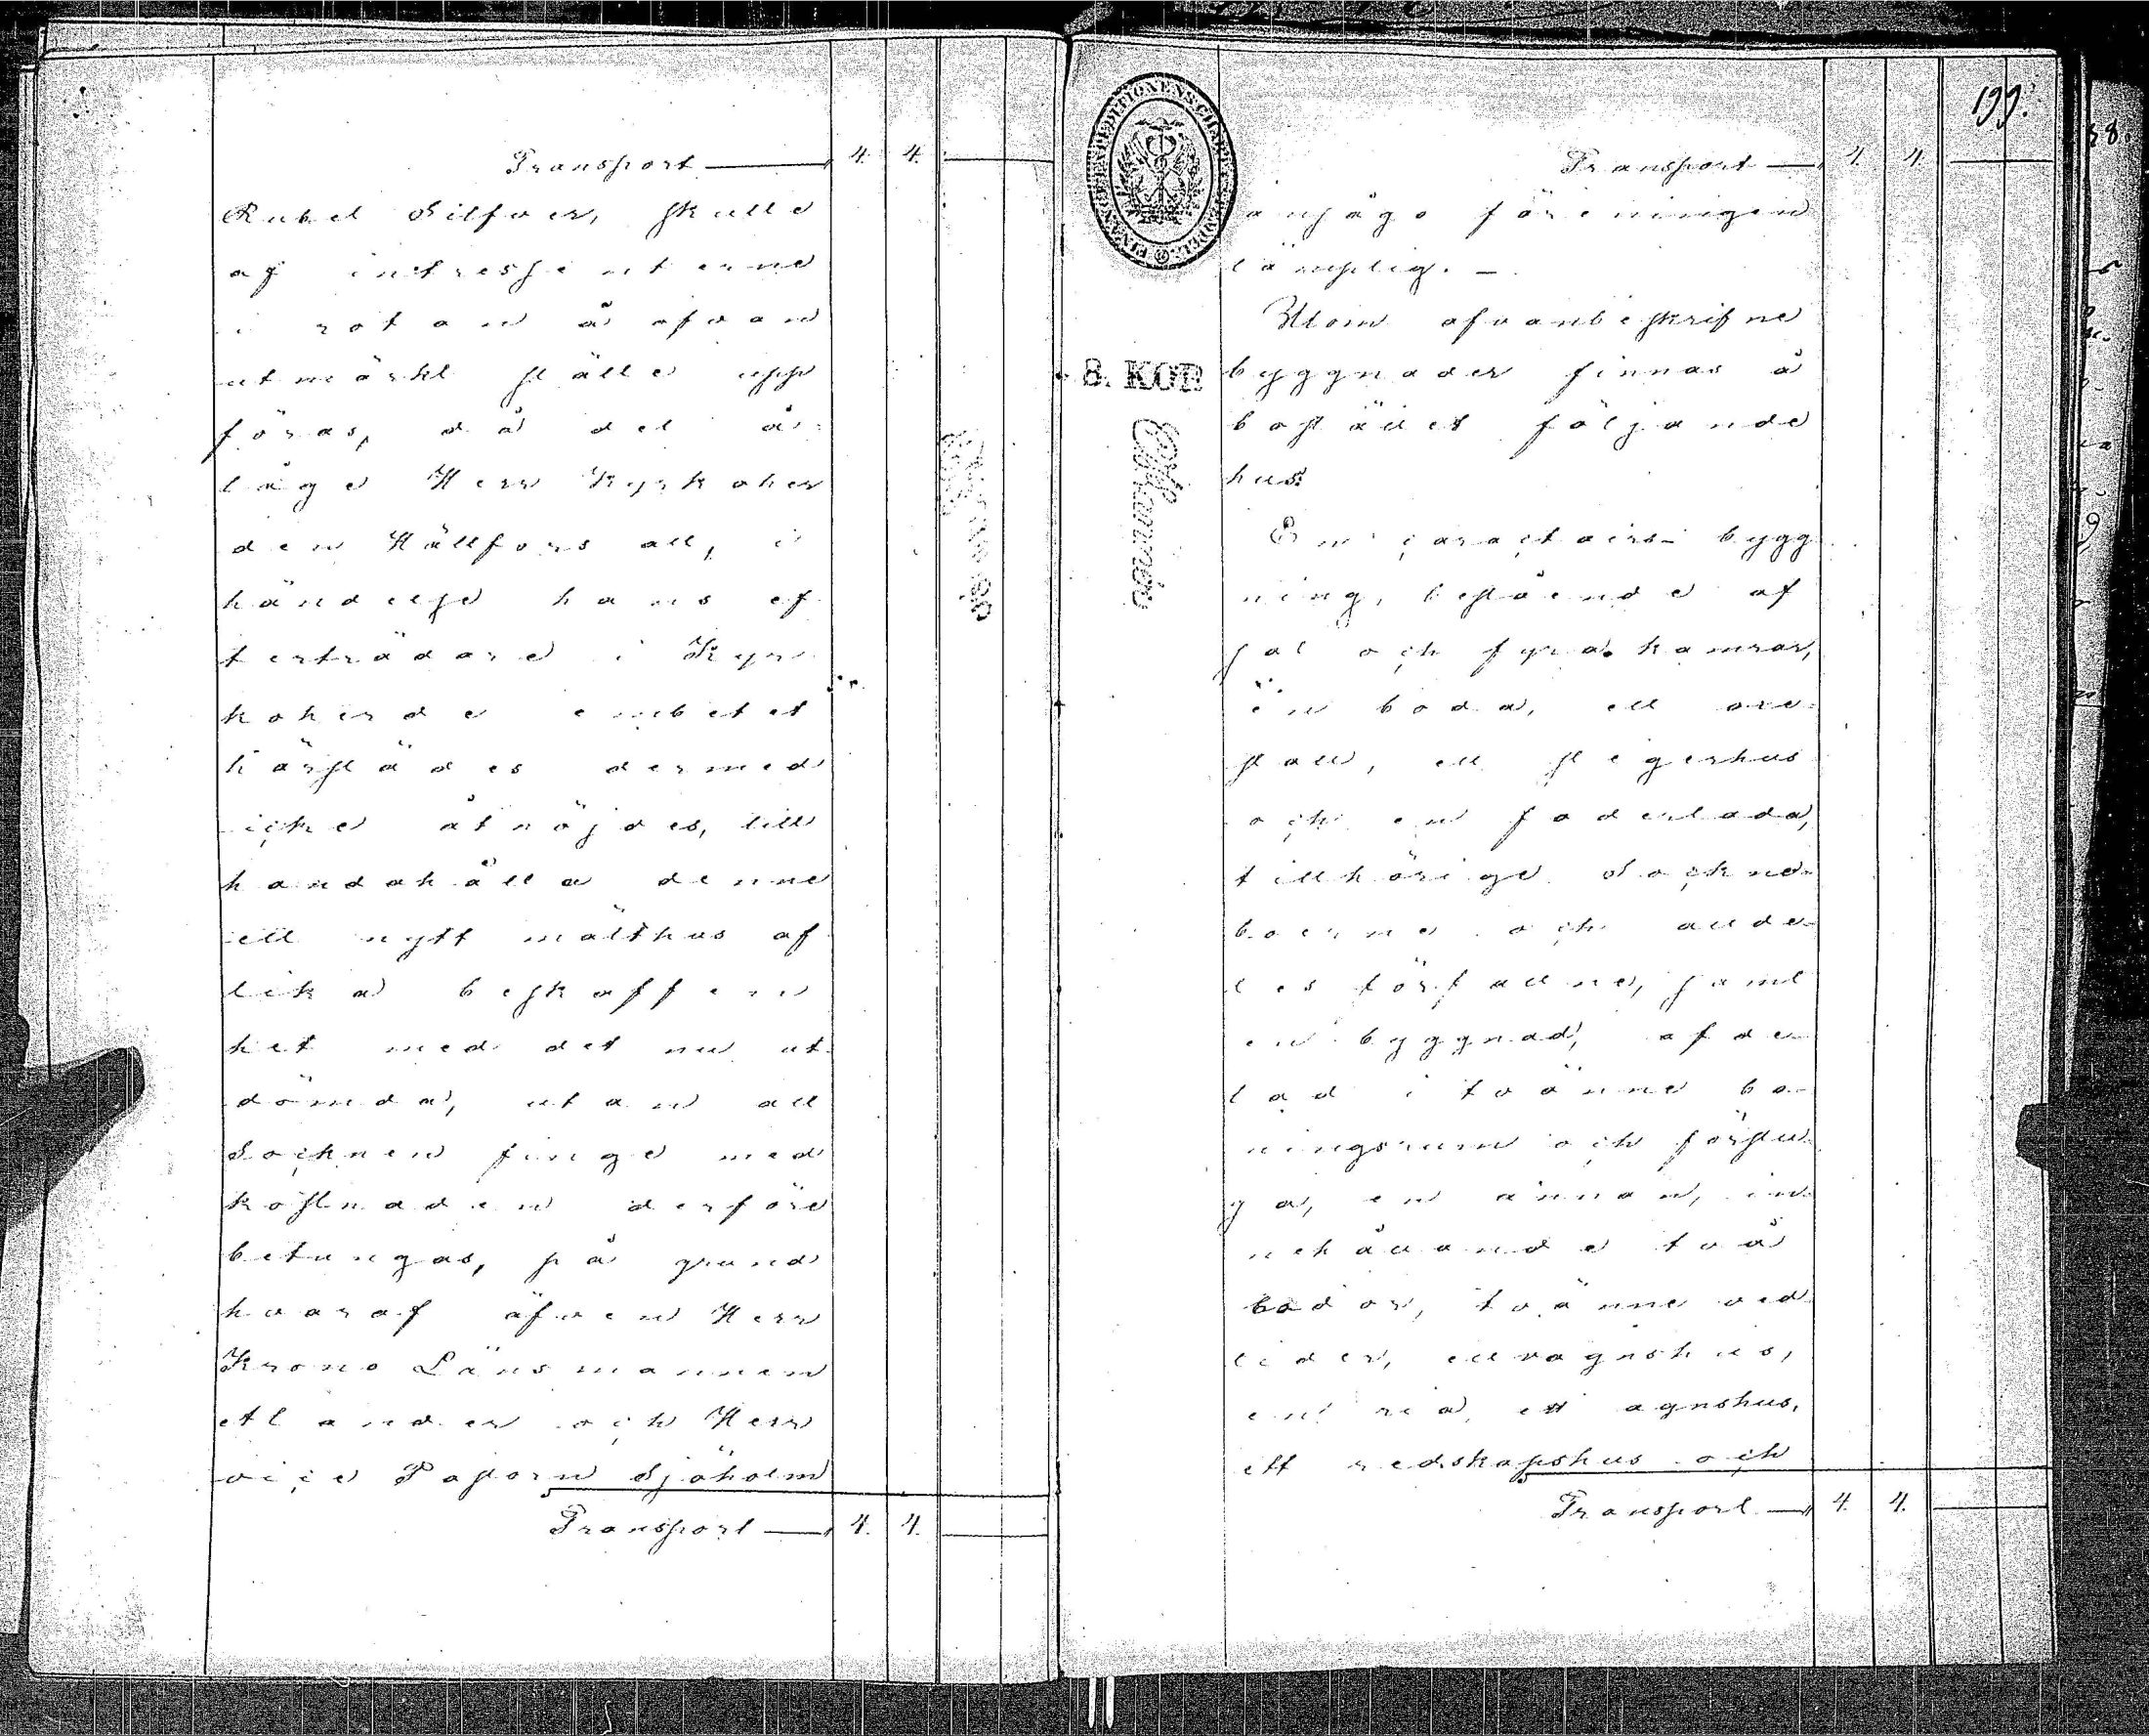 Transport — 4. 4. —
Rubel Silfver, skulle
af intressenterne
i rotan å ofvan
utmärkt ställe upp
föras, då det å-
låge Herr Kyrkoher
den Hällfors att, i
händelse hans ef
terträdare i Kyr
koherde embetet
härstädes dermed
icke åtnöjdes, till
handahålla denne
ett nytt mälthus af
lika beskaffen
het med det nu ut
dömda, utan att
Socknen finge med
kostnaden derföre
betungas, på grund
hvaraf äfven Herr
Krono Länsmannen
och Herr
vice Pastorn Sjöholm
Transport — 4. 4. —
199.
Transport — 4. 4. —
ansågo föreningen
lämplig. —
Utom ofvanbeskrifne
byggnader finnas å
bostället följande
hus:
En caractairs- bygg
ning, bestående af
sal och fyra kamrar,
en boda, ett
stall, ett stegerhus
och en foderlada,
tillhörige Sockne-
boerne och allde-
les förfallne, samt
en byggnad, afde-
lad i tvänne bo-
ningsrum och förstu-
ga, en annan, in-
nehållande två
bodor, tvänne ved
lider, ett vagnshus,
en ria, ett agnshus,
ett redskapshus och
Transport — 4. 4. —
8. KOP.